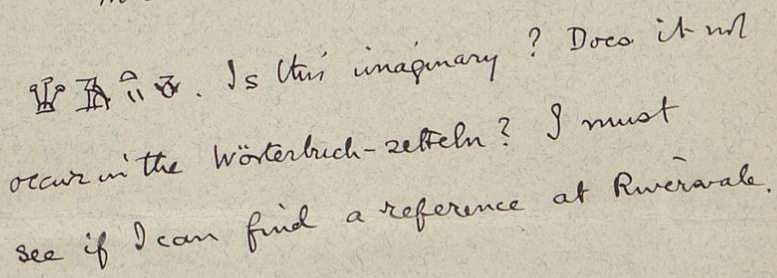 . Is this imaginary? Does it not
occur in the Wörterbuch-zetteln? I must
see if I can find a reference at Rivervale.